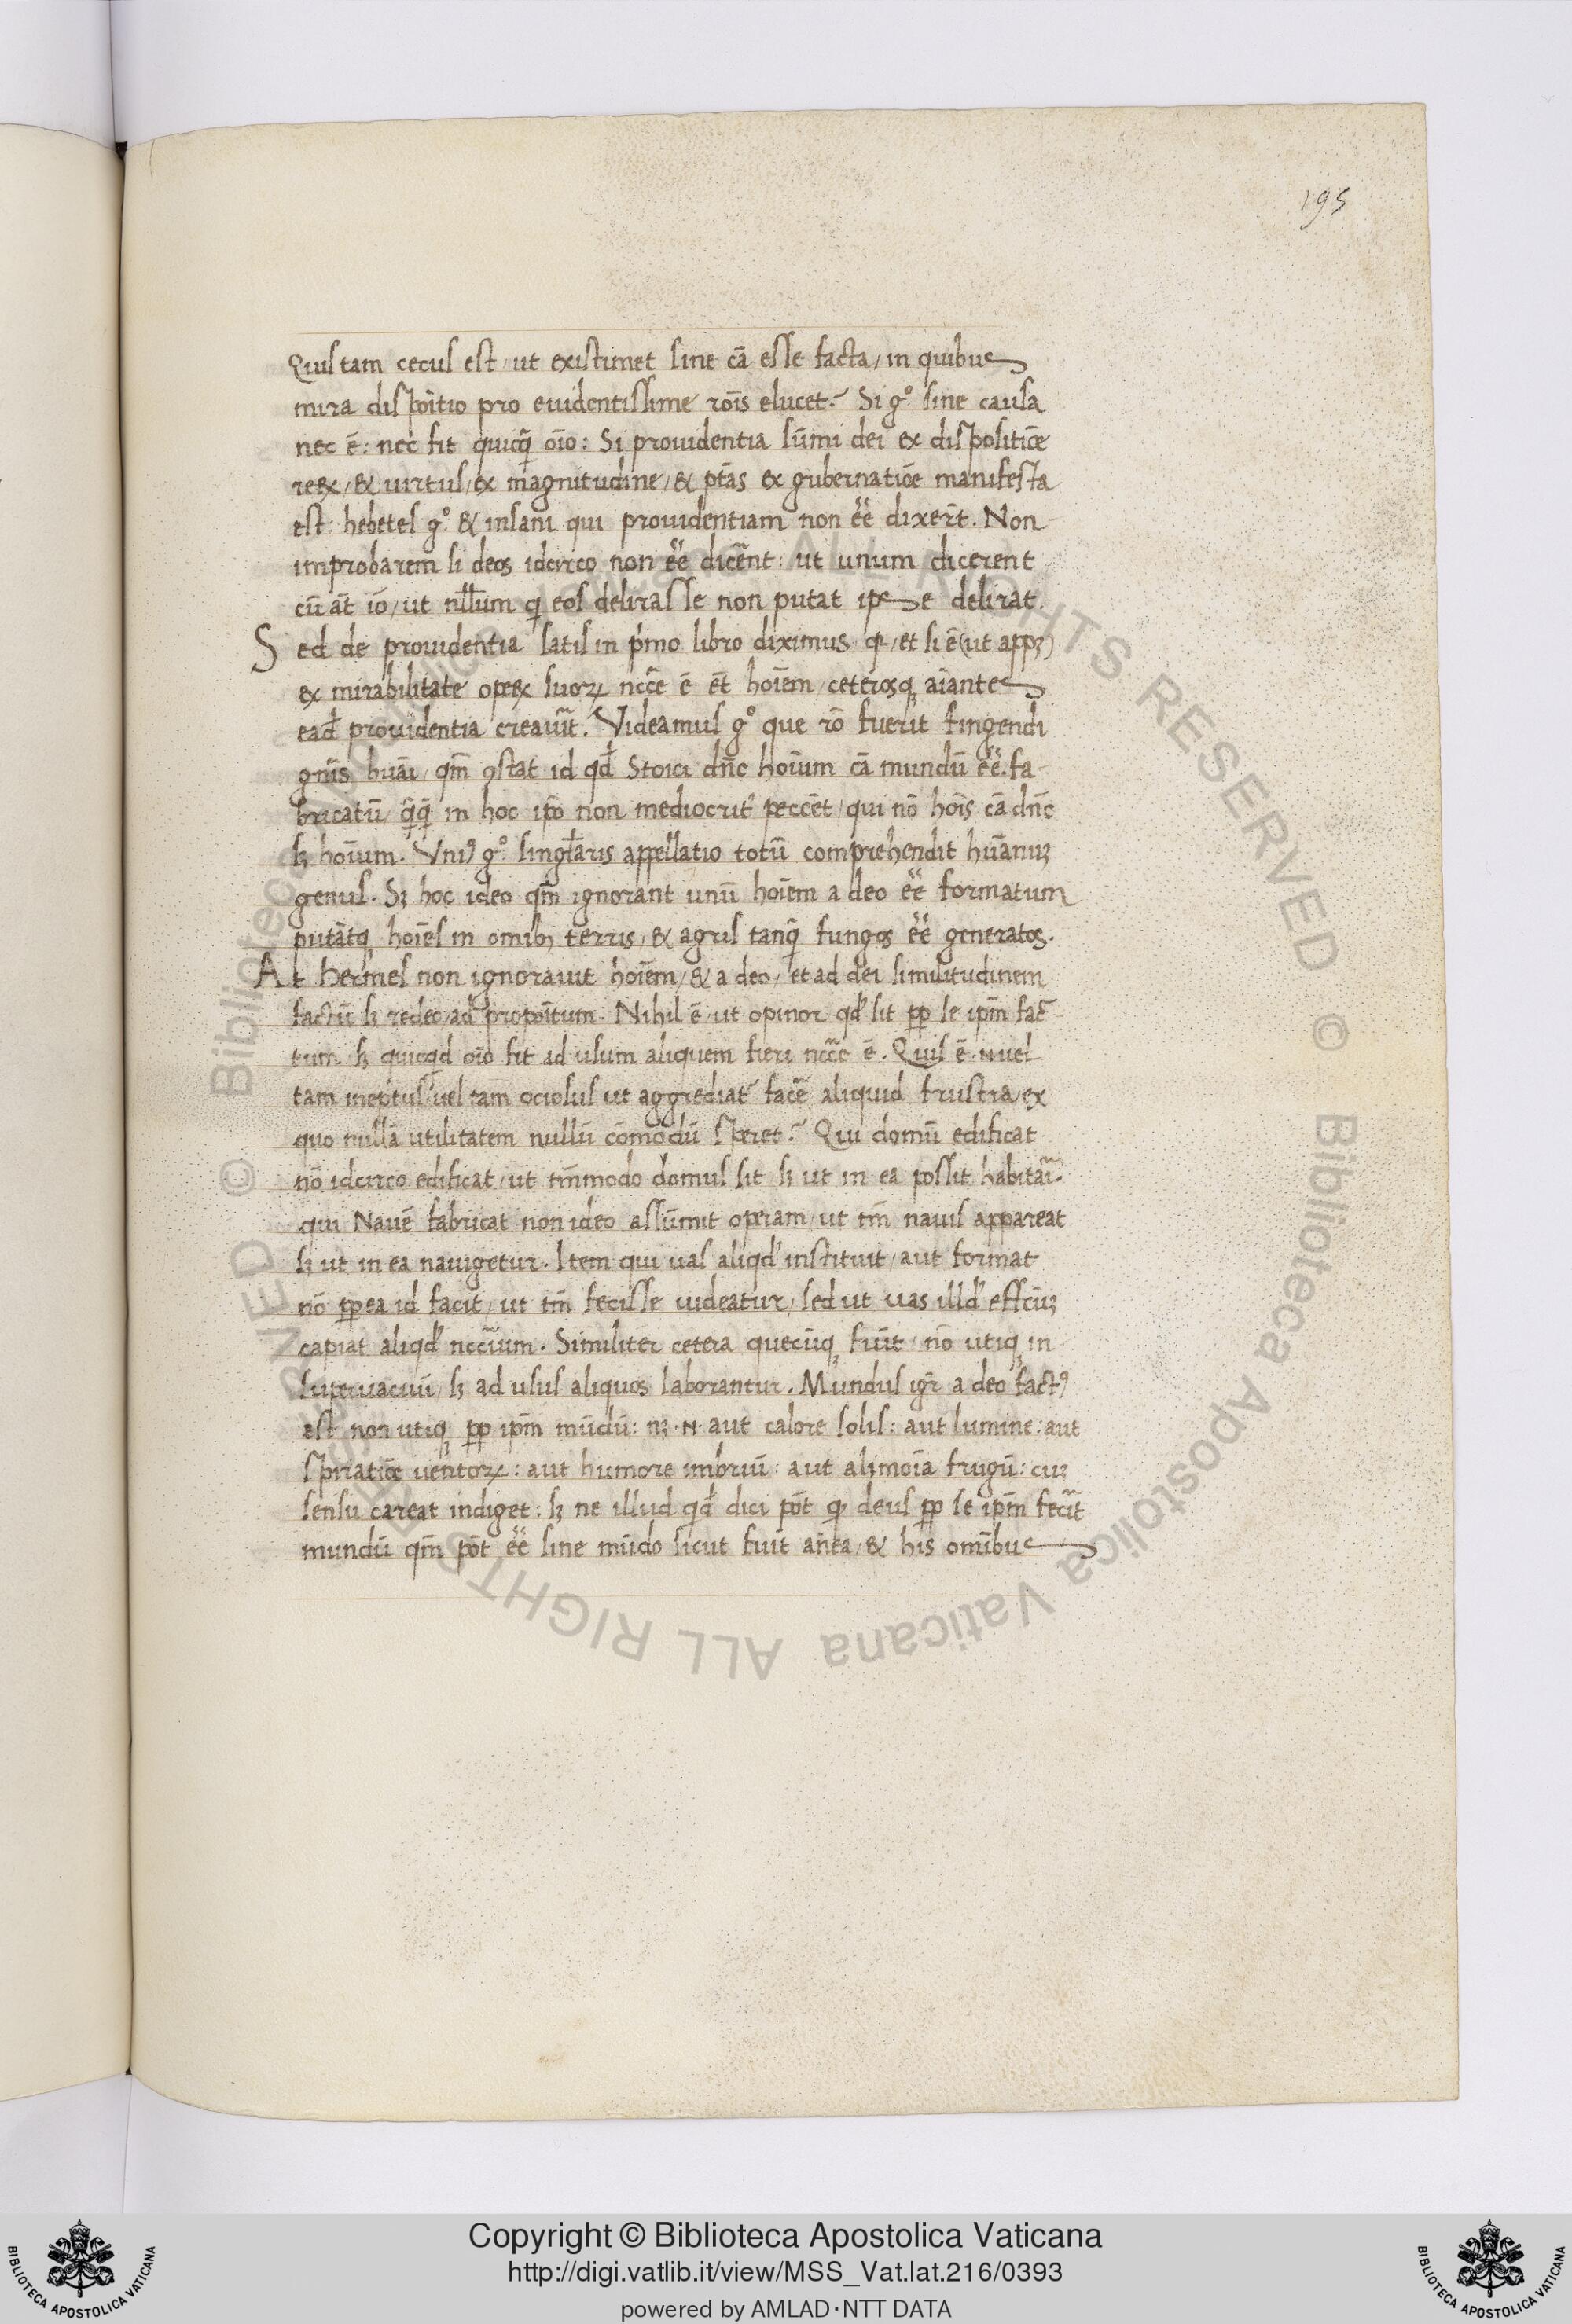 195
Quis tam cecus est / ut existimet sine cā esse facta / in quibus
mira dispoītio pro euidentissime rōis elucet? Si gͦ sine causa
nec ē: nec fit quicq̄ oīo: Si prouidentia sūmi dei ex dispositiōe
reꝝ / & uirtus / ex magnitudine / & ptās ex gubernatiōe manifesta
est: hebetes gͦ & insani qui prouidentiam non eē dixer̄t. Non
improbarem si deos idcirco non eē dicēnt: ut unum dicerent
cū āt iō / ut nllum q̄ eos delirasse non putat ipse delirat.
Sed de prouidentia satis in pͥmo libro diximus q̄ / et si ē (ut appꝫ)
ex mirabilitate opeꝝ suoꝝ nccē ē ēt hoīem / ceterosqꝫ aīantes
ead̄ prouidentia creauit̄. Videamus gͦ que rō fuerit fingendi
gn̄is huāi / qm̄ ꝯstat id qd̄ Stoici dn̄t hoīum cā mundū eē fa-
bricatū / q̄q̄ in hoc ip̄o non mediocrit̄ peccēt / qui nō hoīs cā dn̄t
sꝫ hoīum. Vniꝰ gͦ singlaris appellatio totū comprehendit huānuꝫ
genus. Sꝫ hoc ideo qm̄ ignorant unū hoīem a deo eē formatum
putātqꝫ hoīes in omibꝫ terris / & agris tanq̄ fungos eē generatos.
At hermes non ignorauit hoīem / & a deo / et ad dei similitudinem
factū sꝫ redeo / ad propoītum. Nihil ē / ut opinor qd̄ sit ꝑp se ipm̄ fac̄-
tum sꝫ quicqd oīo fit ad usum aliquem fieri nccē ē. Quis ē .n. uel
tam ineptus / uel tam ociosus ut aggrediat̄ facē aliquid frustra / ex
quo nullā utilitatem nullū cōmodū speret? Qui domū edificat
nō idcirco edificat / ut tm̄modo domus sit sꝫ ut in ea possit habitāi.
qui Nauē fabricat non ideo assūmit operam / ut tm̄ nauis appareat
sꝫ ut in ea nauigetur. Item qui uas aliqd̄ instituit / aut format
nō ꝑpea id facit / ut tm̄ fecisse uideatur / sed ut uas illd̄ effcūꝫ
capiat aliqd̄ nccīum. Similiter cetera quecūqꝫ fiūt / nō utiqꝫ in
superuacuū / sꝫ ad usus aliquos laborantur. Mundus igr̄ a deo factꝰ
est non utiqꝫ ꝑp ipm̄ mūdū: nꝫ .n. aut calore solis: aut lumine: aut
spiratiōe uentoꝝ: aut humore imbriū: aut alimoīa frugū: cuꝫ
sensu careat indiget: sꝫ ne illud qd̄ dici pōt ꝙ deus ꝑp se ipm̄ fecit̄
mundū qm̄ pōt eē sine mūdo sicut fuit an̄ea / & his omībus
Copyright © Biblioteca Apostolica Vaticana
http://digi.vatlib.it/view/MSS_Vat.lat.216/0393
powered by AMLAD·NTT DATA